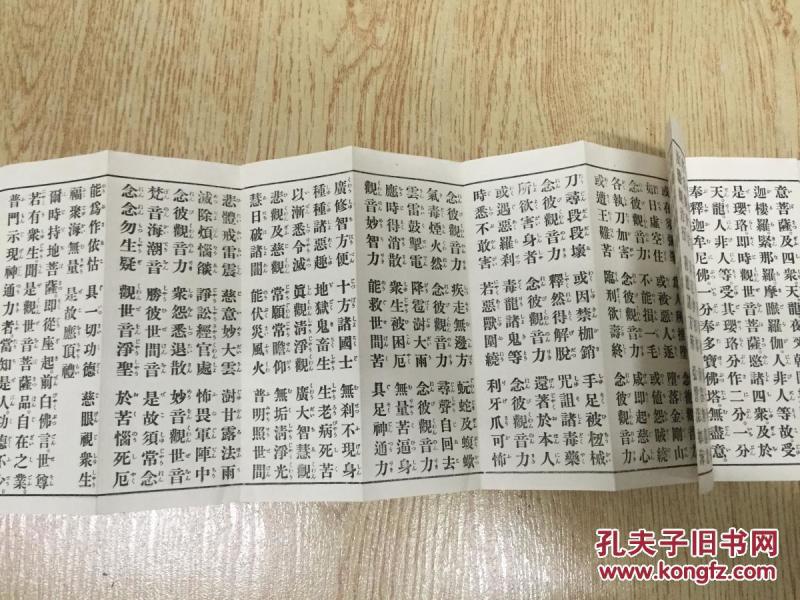 意菩薩愍諸四衆及於
迦樓羅緊那羅摩睺羅伽人非人等故受
是瓔珞即時觀世音菩薩愍諸四衆及於
天龍人非人等受其瓔珞分作二分一分
奉釋迦牟尼佛一分奉多寶佛塔無盡意
如日虛空住 或被惡人逐 墮落金剛山
念彼觀音力 不能損一毛 或値怨賊繞
各執刀加害 念彼觀音力 咸即起慈心
或遭王難苦 臨刑欲壽終 念彼觀音力
刀尋段段壞 或因禁枷鎖 手足被杻械
念彼觀音力 釋然得解脫 咒詛諸毒藥
所欲害身者 念彼觀音力 還著於本人
或遇惡羅刹 毒龍諸鬼等 念彼觀音力
時悉不敢害 若惡獸圍繞 利牙爪可怖
念彼觀音力 疾走無邊方 蚖蛇及蝮蠍
氣毒煙火然 念彼觀音力 尋聲自回去
雲雷鼓掣電 降雹澍大雨 念彼觀音力
應時得消散 衆生被困厄 無量苦逼身
觀音妙智力 能救世間苦 具足神通力
廣修智方便 十方諸國土 無刹不現身
種種諸惡趣 地獄鬼畜生 生老病死苦
以漸悉令滅 眞觀清淨觀 廣大智慧觀
悲觀及慈觀 常願常瞻仰 無垢清淨光
慧日破諸闇 能伏災風火 普明照世間
悲體戒雷震 慈意妙大雲 澍甘露法雨
滅除煩惱燄 諍訟經官處 怖畏軍陣中
念彼觀音力 衆怨悉退散 妙音觀世音
梵音海潮音 勝彼世間音 是故須常念
念念勿生疑 觀世音淨聖 於苦惱死厄
能爲作依怙 具一切功德 慈眼視衆生
福聚海無量 是故應頂禮
爾時持地菩薩即從座起前白佛言世尊
若有衆生聞是觀世音菩薩品自在之業
普門示現神通力者當知是人功德不少
孔夫子旧书网
www.kongfz.com